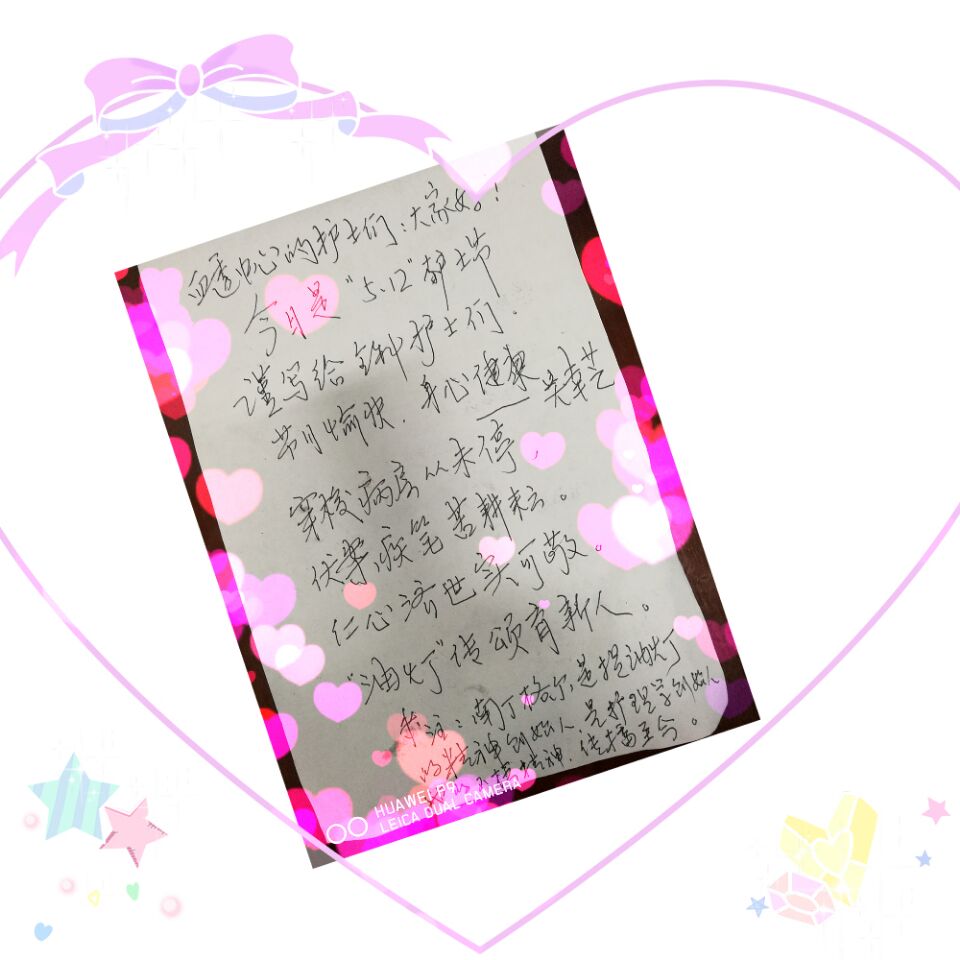 血透中心的护士们：大家好！
今日是“5.12”护士节
谨写给全科护士们.
节日愉快.身心健康
吴幸艺
穿梭病房从未停,
伏案疾笔苦耕耘。
仁心济世实可敬。
“油灯”传颂育新人。
来注：南丁格尔,是提油灯
的精神创始人是护理学创始人
精神.传播至今。
HUAWEI P9
LEICA DUAL CAMERA